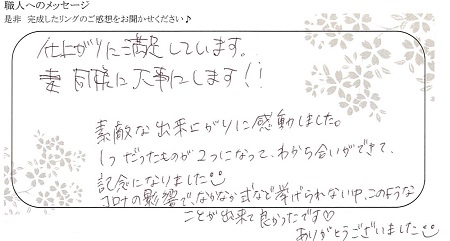 職人へのメッセージ
是非 完成したリングのご感想をお聞かせください♪
仕上がりに満足しています。
妻同様に大事にします!!
素敵な出来上がりに感動しました。
1つだったものが2つになって、わかち合いができて、
記念になりました
コロナの影響で、なかなか式など挙げられない中、このような
ことが出来て良かったです♡
ありがとうございました